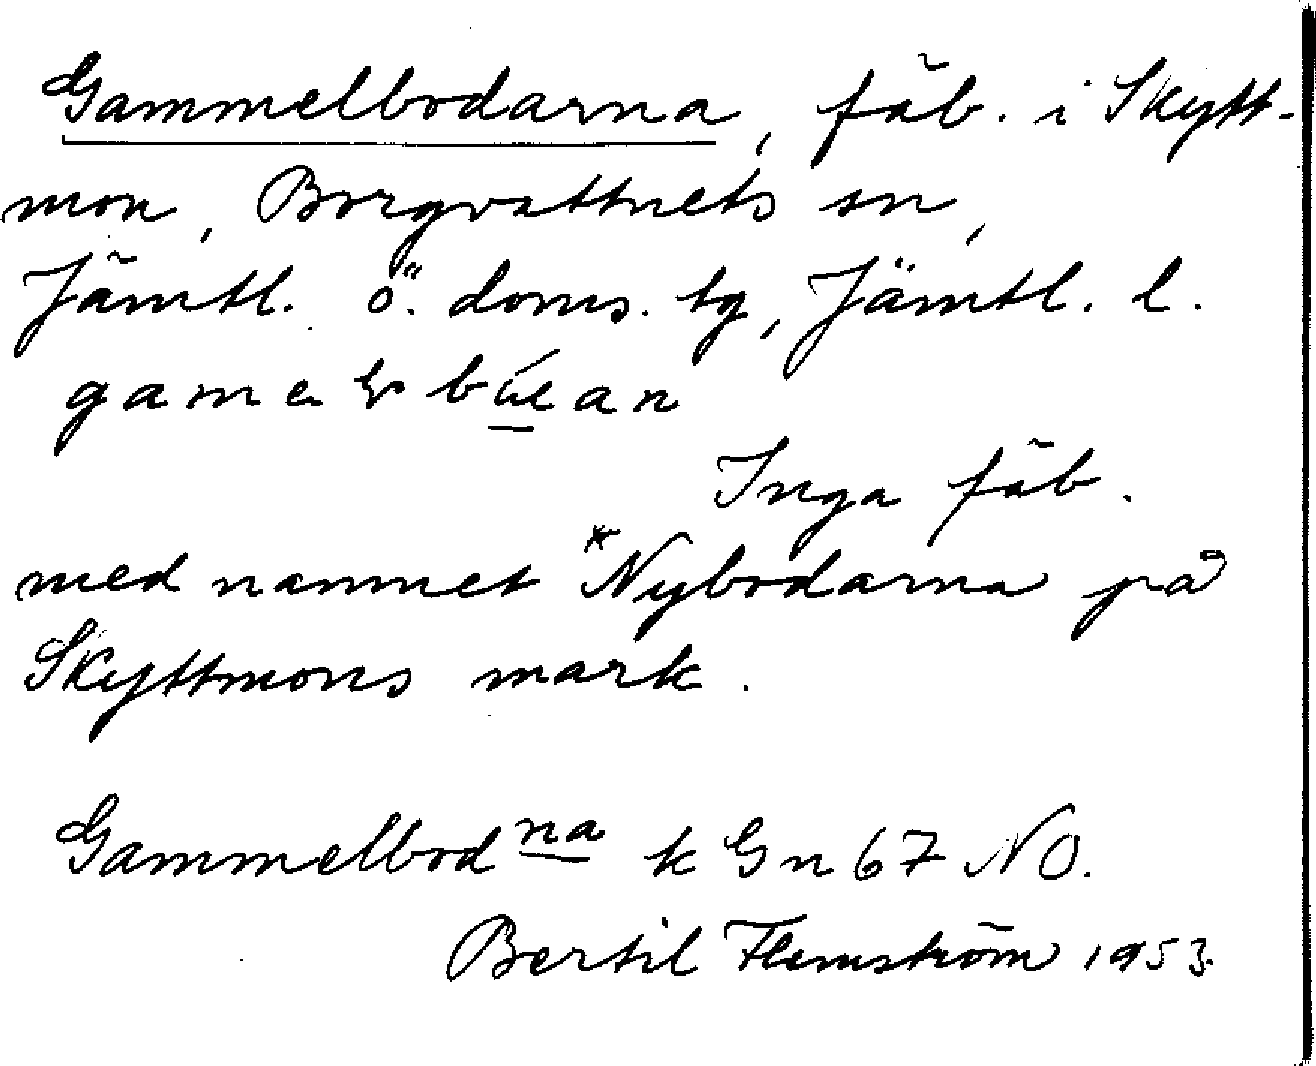 Gammelbodarna, fäb. i Skytt-
mon, Borgvattnets sn,
Jämtl. ö. doms. tg, Jämtl. l.
Inga fäb.
med namnet *Nybodarna på
Skyttmons mark.
Gammelbodna k Gn 67 NO.
Bertil Flemström 1953.